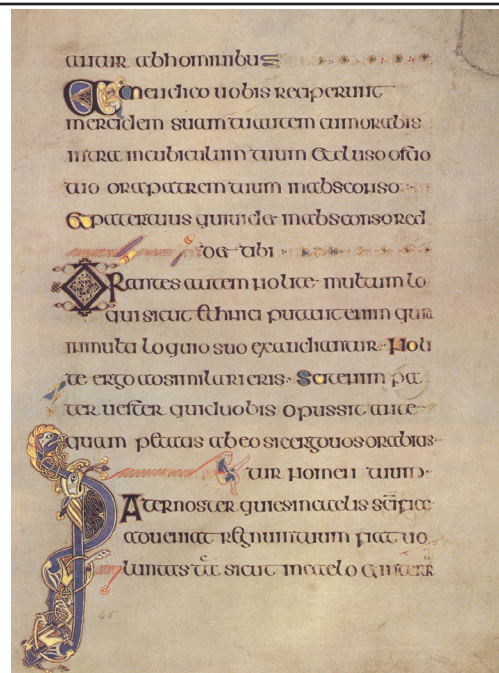 antur abhominibus
Amen dico uobis reciperunt
mercidem suam tu autem cum orabis
intra incubiculum tuum et cluso ostio
tuo ora patrem tuum inabsconso
Et pater tuus qui uidet inabsconso red
det tibi
Orantes autem nolite multum lo
qui sicut ethnici putant enim quia
inmulti loquio suo exaudiantur Noli
te ergo adsimilari eris Scit enim pa
ter uester quid uobis opus sit ante
quam petatis ab eo sic ergo uos orabitis
tur nomen tuum
Pater noster qui es incaelis scifice
adueniat regnum tuum fiat uo
luntas tua sicut incaelo et interr
45